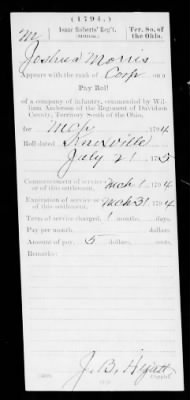 (1794.)
M | Isaac Roberts' Reg't. | Ter. So. of
(MILITIA.) | the Ohio.
Joshua Morris
Appears with the rank of Corp on a
Pay Roll
of a company of infantry, commanded by Wil-
liam Anderson of the Regiment of Davidson
County, Territory South of the Ohio,
for Mch, 1794
Roll dated Knoxville
July 21, 1795
Commencement of service or of this settlement, Mch 1, 1794
Expiration of service or of this settlement, Mch 31, 1794
Term of service charged, 1 months, days.
Pay per month, dollars.
Amount of pay, 5 dollars, cents.
Remarks:
J. B. Hyatt
Copyist.